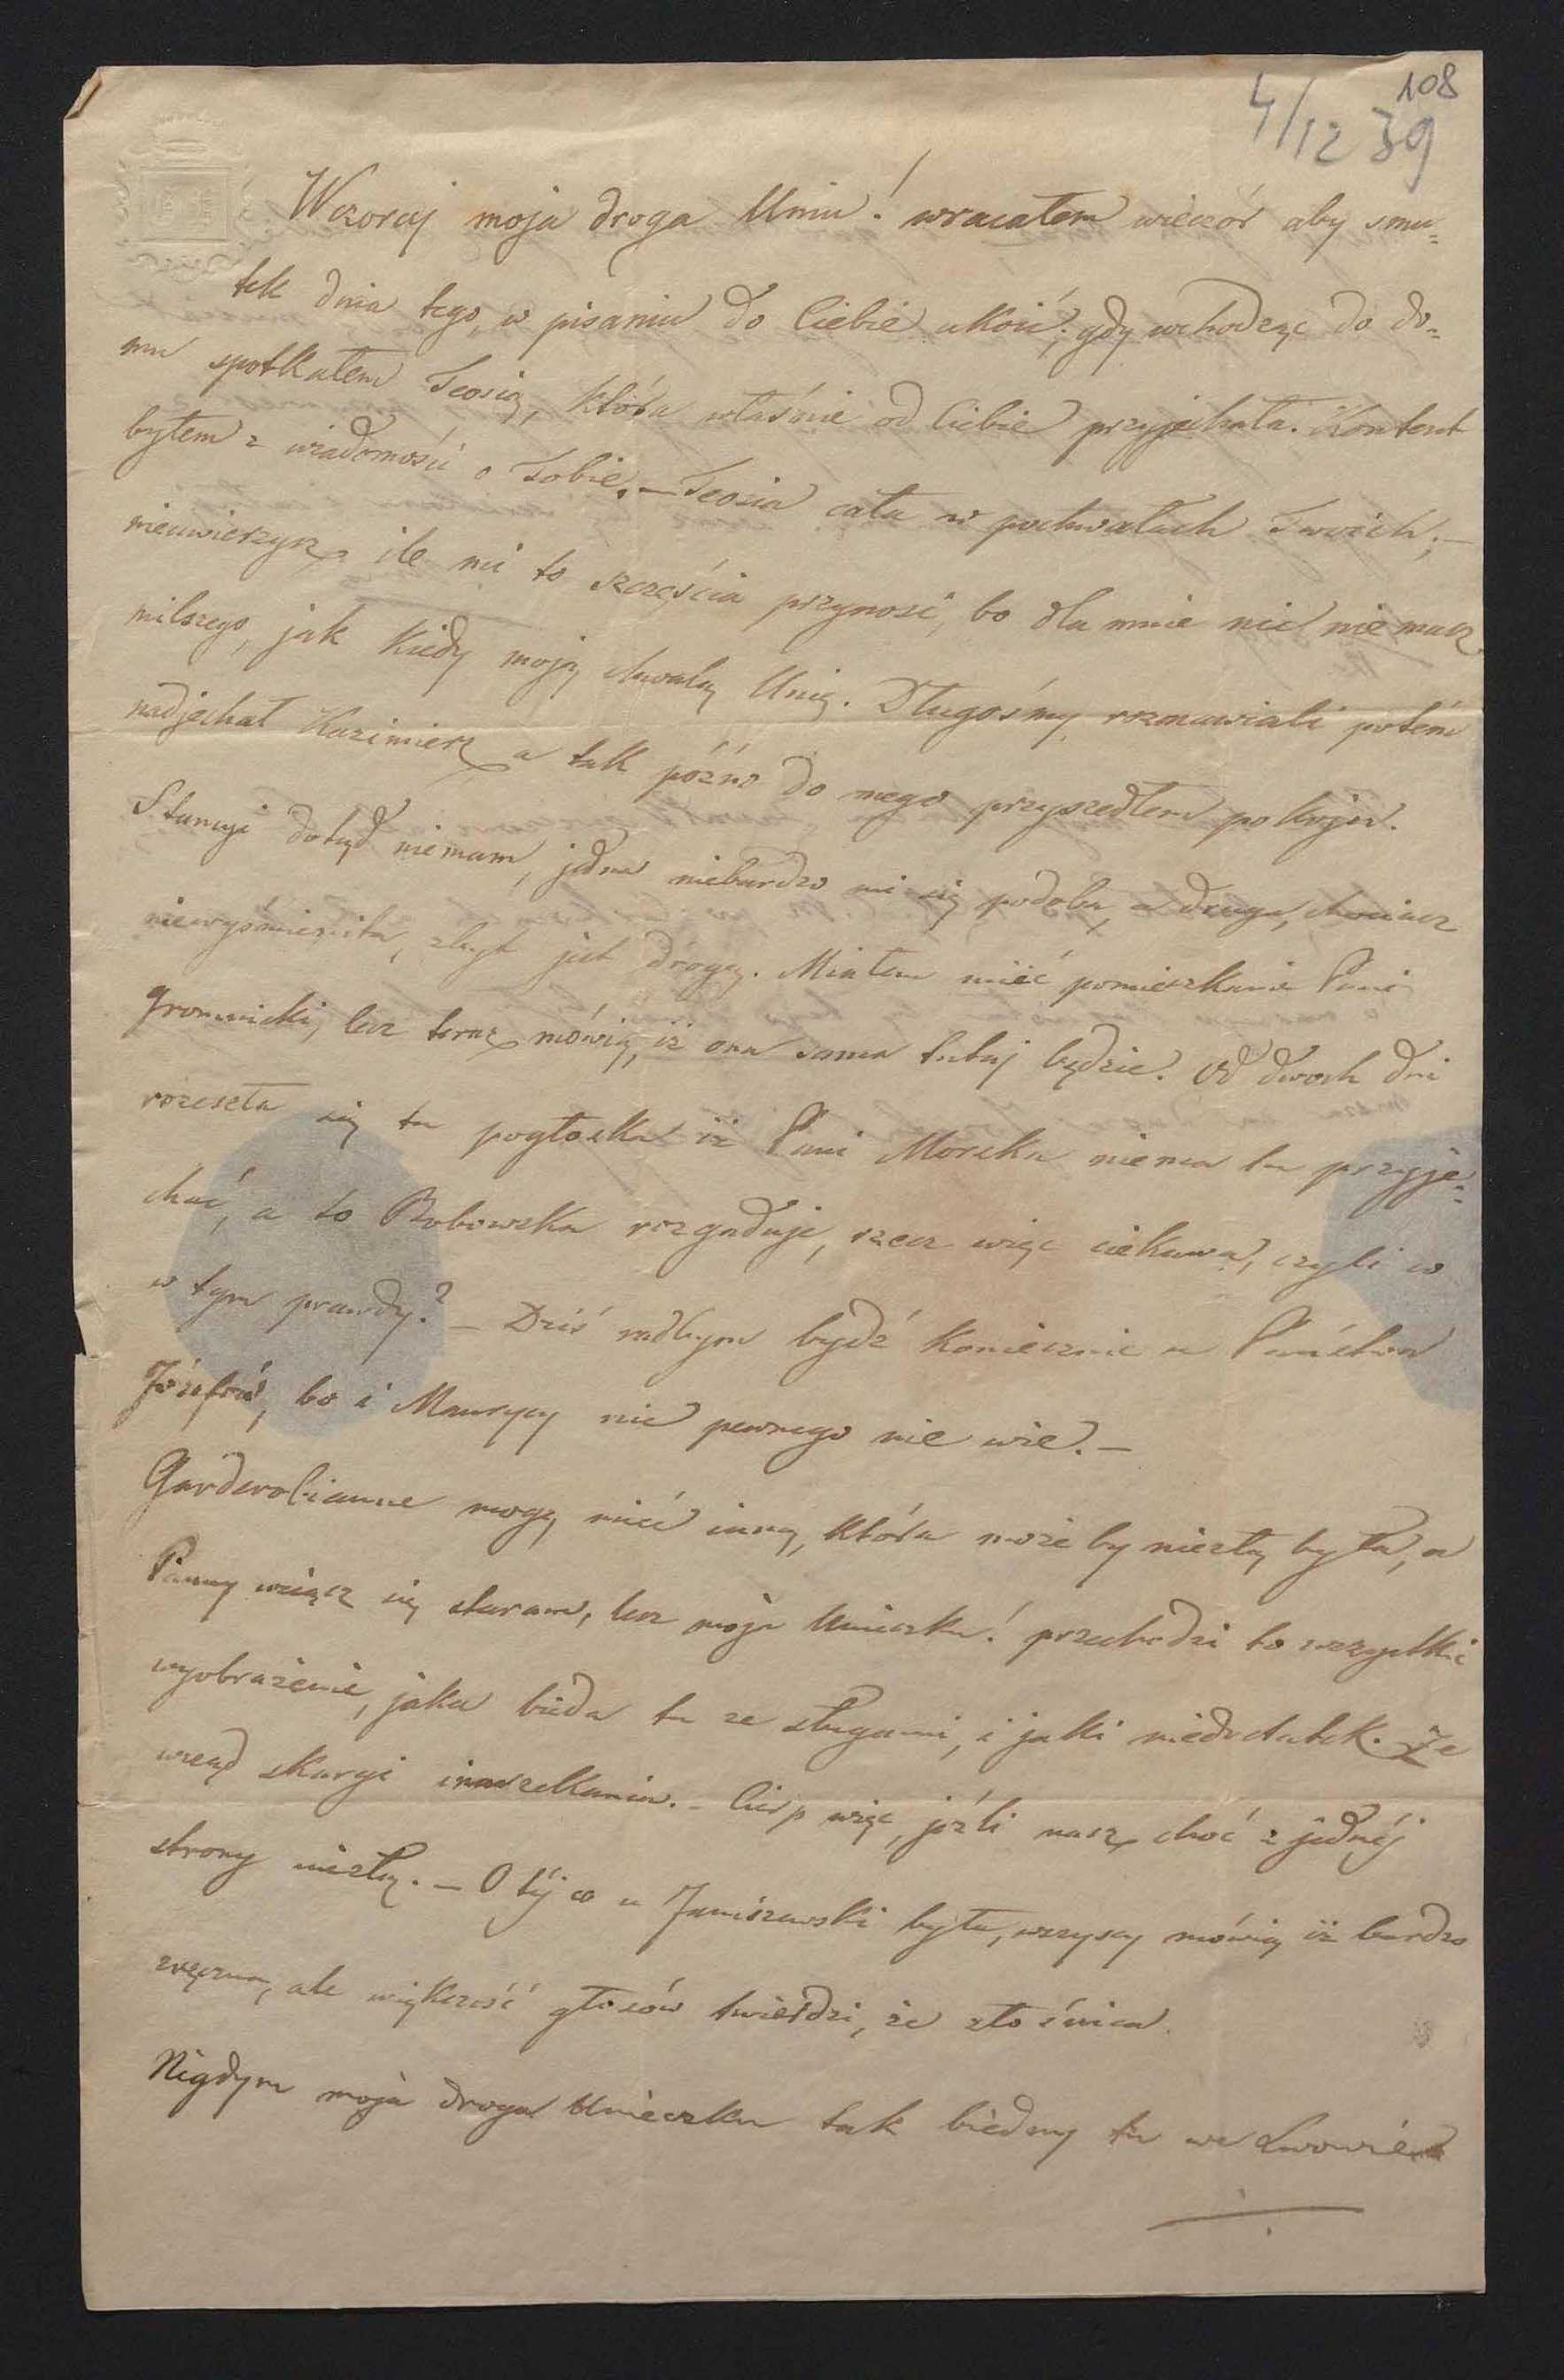 108
4/12 39
Wczoraj moja droga Uniu! wracałem wieczór aby smu=
tek dnia tego, w pisaniu do Ciebie ukoić; gdy wchodząc do do=
mu spotkałem Teosię, która właśnie od Ciebie przyjechała. Kontent
byłem z wiadomości o Tobie. – Teosia cała w pochwałach Twoich; –
nieuwierzysz ile mi to szczęścia przynosi, bo dla mnie nic nie masz
milszego, jak kiedy moją chwalą Unię. Długośmy rozmawiali potém
nadjechał Kazimierz a tak późno do mego przyszedłem pokoju.
Stancyi dotąd niemam, jedna niebardzo mi się podoba, a druga, chociasz
niewyśmienita, zbyt jest drogą. Miałem mieć pomieszkanie Pani
Gromnicki, lecz teraz mówią, iż ona sama tutaj będzie. Od dwoch dni
rozeszła się tu pogłoska iż Pani Morska niema tu przyje=
chać, a to Bobowska rozgaduje, rzecz więc ciekawa, czyli co
w tym prawdy? – Dziś radbym bydź koniecznie u Państwa
Józefów, bo i Maurycy nic pewnego nie wie. –
Garderobianne mogę mieć inną, która może by niezłą była, a
Panny wciąsz się staram, lecz moja Unieczku! przechodzi to wszystkie
wyobrażenie, jaka bieda tu ze sługami, i jaki niedostatek. Ze
wsząd skargi i narzekania. – Cierp więc, jeźli masz choć z jednéj
strony niezłą. – O téj co u Janiszewski była, wszyscy mówią iż bardzo
zręczna, ale większość głosów twierdzi, że złośnica.
Nigdym moja droga Unieczku tak biedny tu we Lwowie